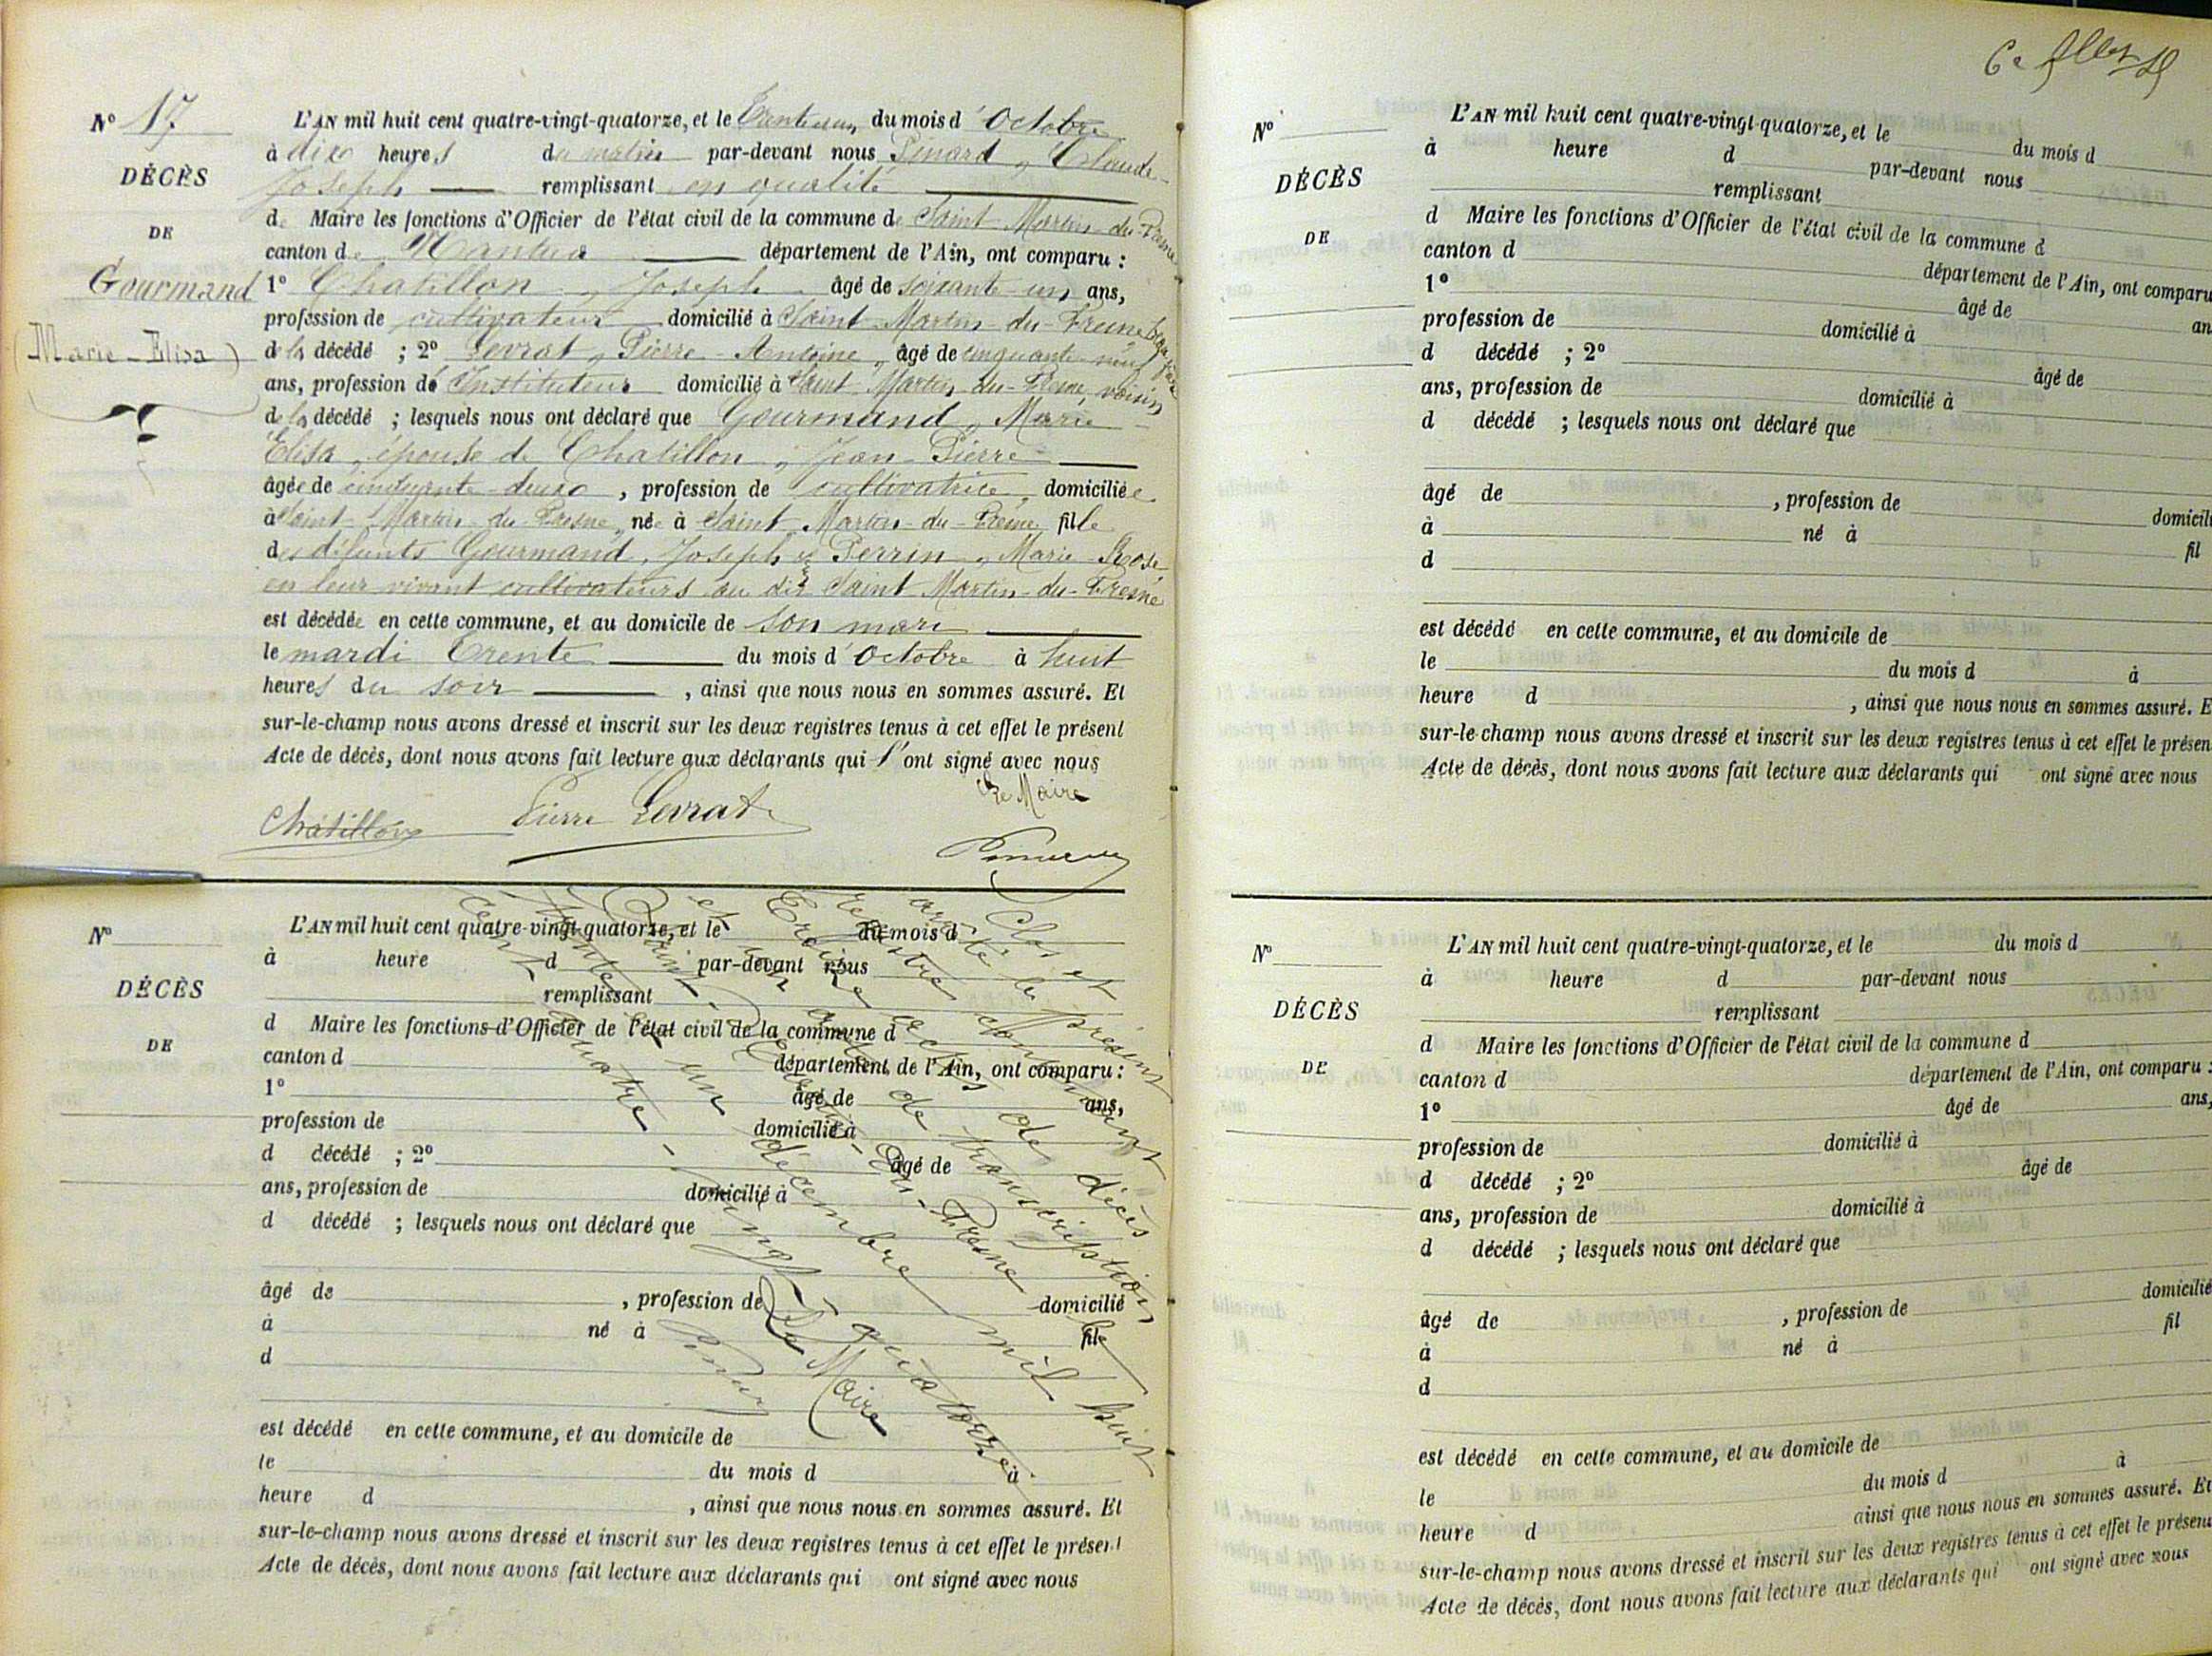 N° 17
DÉCÈS
DE
Gourmand
(Marie-Elisa)
L'AN mil huit cent quatre-vingt-quatorze, et le Trente un, du mois d'Octobre
à dix heures du matin par-devant nous Pinard, Claude-
Joseph remplissant en qualité
de Maire les fonctions d'Officier de l'état civil de la commune de Saint-Martin-du-Fresne
canton de Nantua département de l'Ain, ont comparu :
1° Chatillon, Joseph âgé de soixante-un ans,
profession de cultivateur domicilié à Saint-Martin-du-Fresne, beau-frère
de la décédé ; 2° Levrat, Pierre-Antoine, âgé de cinquante-neuf
ans, profession dé Instituteur domicilié à Saint-Martin-du-Fresne, voisin
de la décédé ; lesquels nous ont déclaré que Gourmand, Marie-
Elisa, épouse de Chatillon, Jean-Pierre
âgée de cinquante-deux, profession de cultivatrice, domiciliée
à Saint-Martin-du-Fresne, née à Saint-Martin-du-Fresne, fille
des défunts Gourmand, Joseph et Perrin, Marie-Rose
en leur vivant cultivateurs au dit Saint-Martin-du-Fresne
est décédée en cette commune, et au domicile de son mari
le mardi Trente du mois d'Octobre à huit
heures du soir, ainsi que nous nous en sommes assuré. Et
sur-le-champ nous avons dressé et inscrit sur les deux registres tenus à cet effet le présent
Acte de décès, dont nous avons fait lecture aux déclarants qui l'ont signé avec nous
Le Maire
Chatillon Pierre Levrat
Pinard
N°
DÉCÈS
DE
L'AN mil huit cent quatre-vingt-quatorze, et le du mois d
à heure d par-devant nous
remplissant
d Maire les fonctions d'Officier de l'état civil de la commune d
canton d département de l'Ain, ont comparu :
1° âgé de ans,
profession de domicilié à
d décédé ; 2° âgé de
ans, profession de domicilié à
d décédé ; lesquels nous ont déclaré que
âgé de , profession de domicilié
à né à fil
d
est décédé en cette commune, et au domicile de
le du mois d à
heure d , ainsi que nous nous en sommes assuré. Et
sur-le-champ nous avons dressé et inscrit sur les deux registres tenus à cet effet le présent
Acte de décès, dont nous avons fait lecture aux déclarants qui ont signé avec nous
Clos et
arrêté le présent
registre contenant
actes de décès
et un de transcription
Saint-Martin-du-Fresne le
trente un décembre mil huit
cent quatre-vingt quatorze
Le Maire
Pinard
6e
N°
DÉCÈS
DE
L'AN mil huit cent quatre-vingt-quatorze, et le du mois d
à heure d par-devant nous
remplissant
d Maire les fonctions d'Officier de l'état civil de la commune d
canton d département de l'Ain, ont comparu
1° âgé de an
profession de domicilié à
d décédé ; 2° âgé de
ans, profession de domicilié à
d décédé ; lesquels nous ont déclaré que
âgé de , profession de domicili
à né à fil
d
est décédé en cette commune, et au domicile de
le du mois d à
heure d , ainsi que nous nous en sommes assuré. E
sur-le-champ nous avons dressé et inscrit sur les deux registres tenus à cet effet le présen
Acte de décès, dont nous avons fait lecture aux déclarants qui ont signé avec nous
N°
DÉCÈS
DE
L'AN mil huit cent quatre-vingt-quatorze, et le du mois d
à heure d par-devant nous
remplissant
d Maire les fonctions d'Officier de l'état civil de la commune d
canton d département de l'Ain, ont comparu :
1° âgé de ans,
profession de domicilié à
d décédé ; 2° âgé de
ans, profession de domicilié à
d décédé ; lesquels nous ont déclaré que
âgé de , profession de domicilié
à né à fil
d
est décédé en cette commune, et au domicile de
le du mois d à
heure d ainsi que nous nous en sommes assuré. Et
sur-le-champ nous avons dressé et inscrit sur les deux registres tenus à cet effet le présent
Acte de décès, dont nous avons fait lecture aux déclarants qui ont signé avec nous